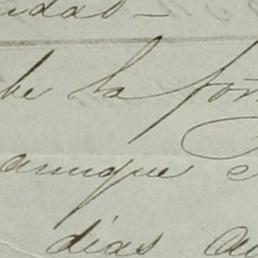 idad -
be la for
aunque e
dias au